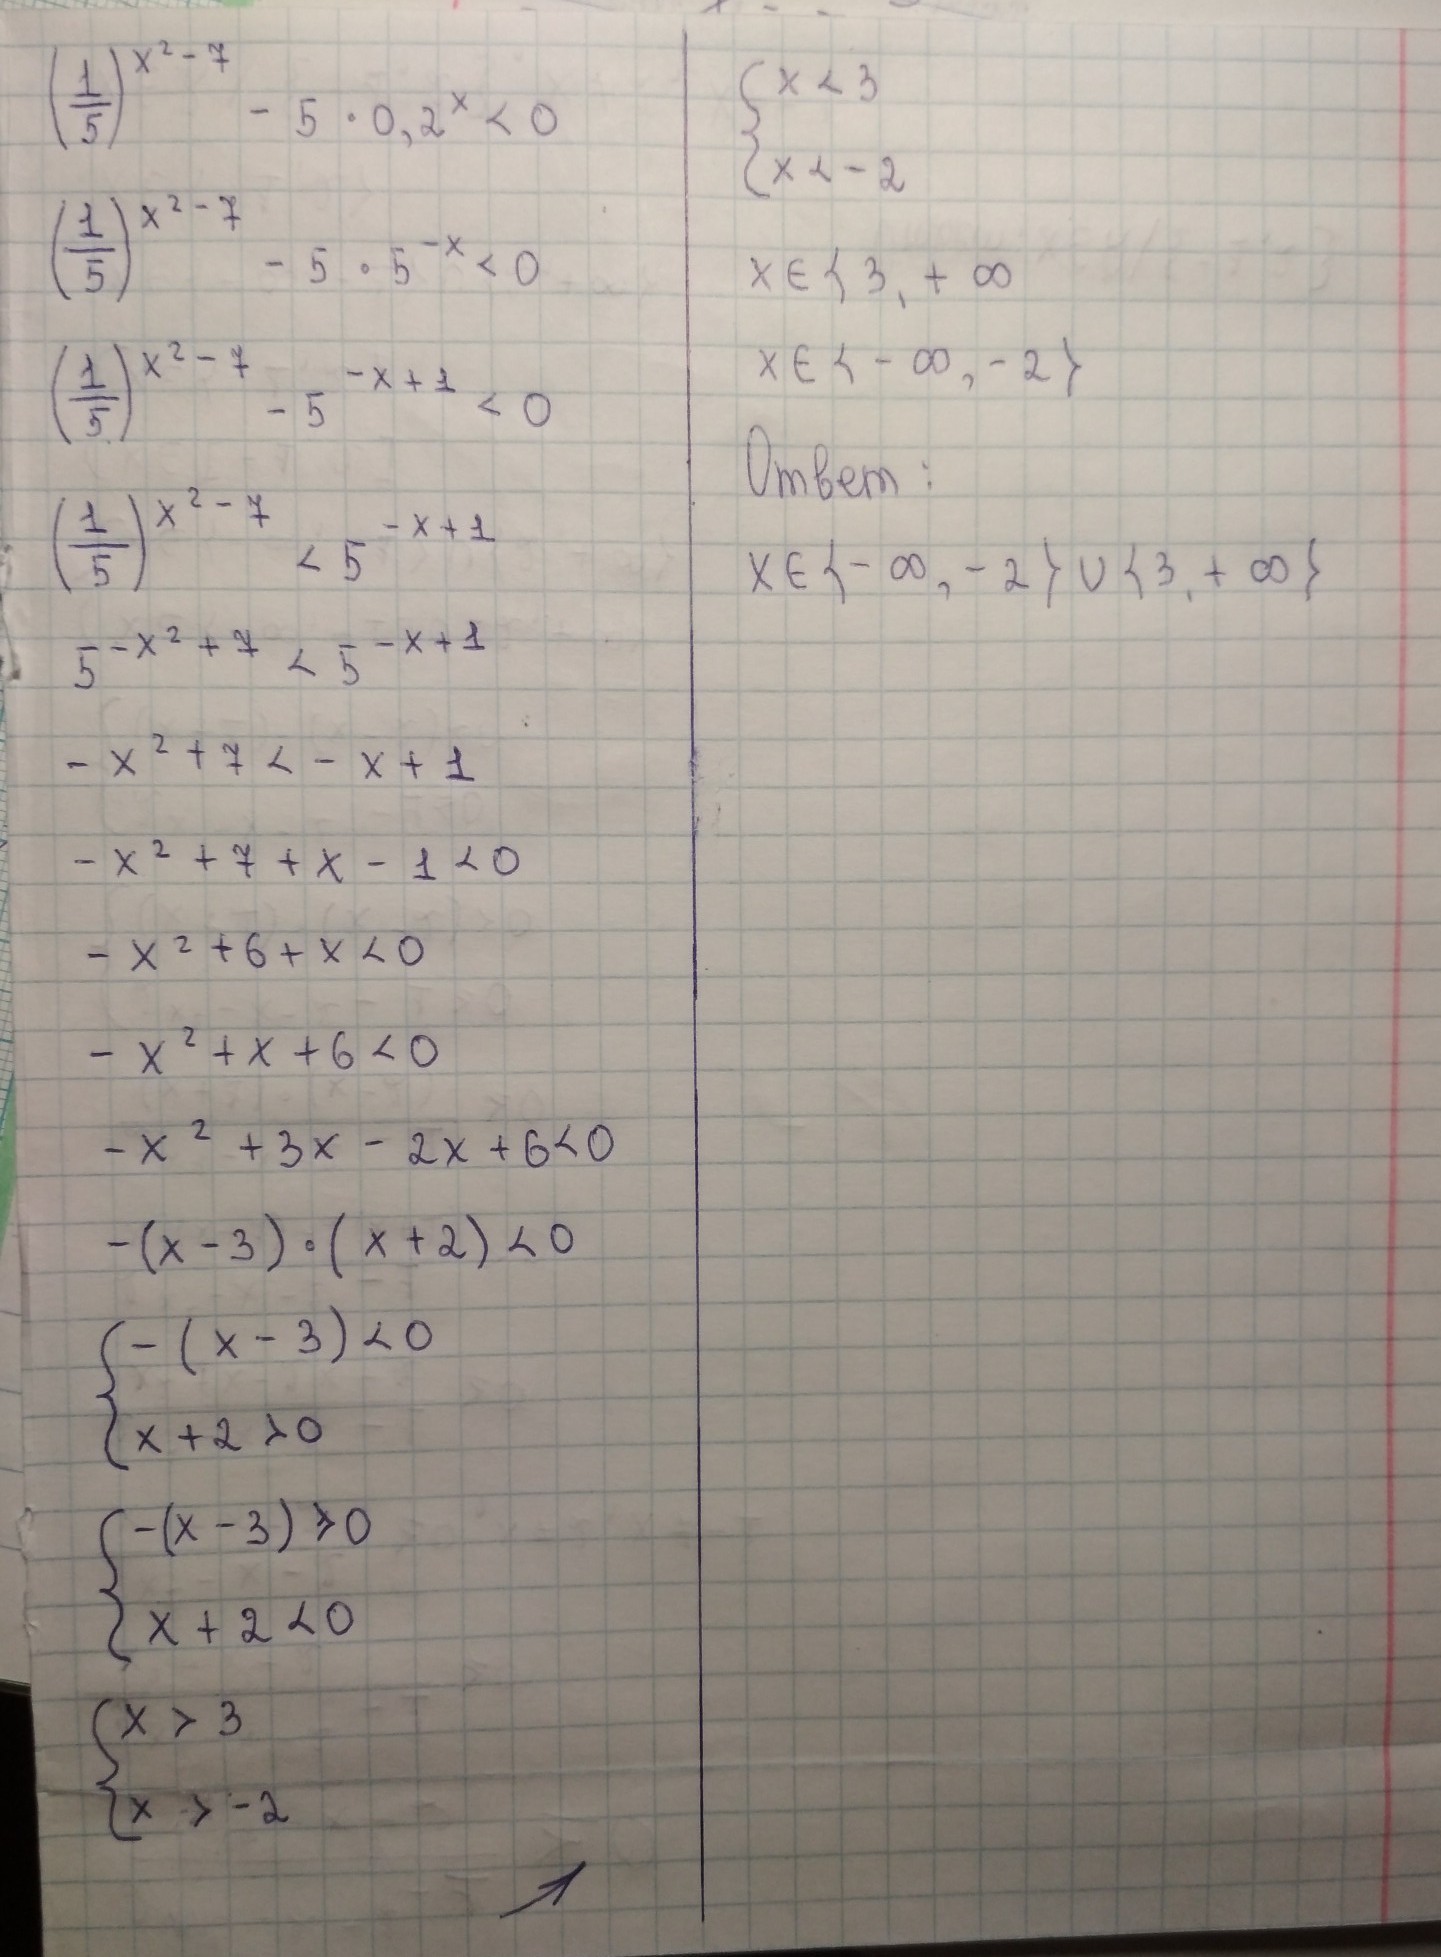 (1/5)^(x²-7) - 5 · 0,2^x < 0
(1/5)^(x²-7) - 5 · 5^(-x) < 0
(1/5)^(x²-7) - 5^(-x+1) < 0
(1/5)^(x²-7) < 5^(-x+1)
5^(-x²+7) < 5^(-x+1)
-x²+7 < -x+1
-x²+7+x-1 < 0
-x²+6+x < 0
-x²+x+6 < 0
-x²+3x-2x+6 < 0
-(x-3)·(x+2) < 0
{ -(x-3) < 0
x+2 > 0
{ -(x-3) > 0
x+2 < 0
{ x > 3
x > -2
{ x < 3
x < -2
x ∈ { 3, +∞
x ∈ { -∞, -2 }
Ответ:
x ∈ { -∞, -2 } ∪ { 3, +∞ }